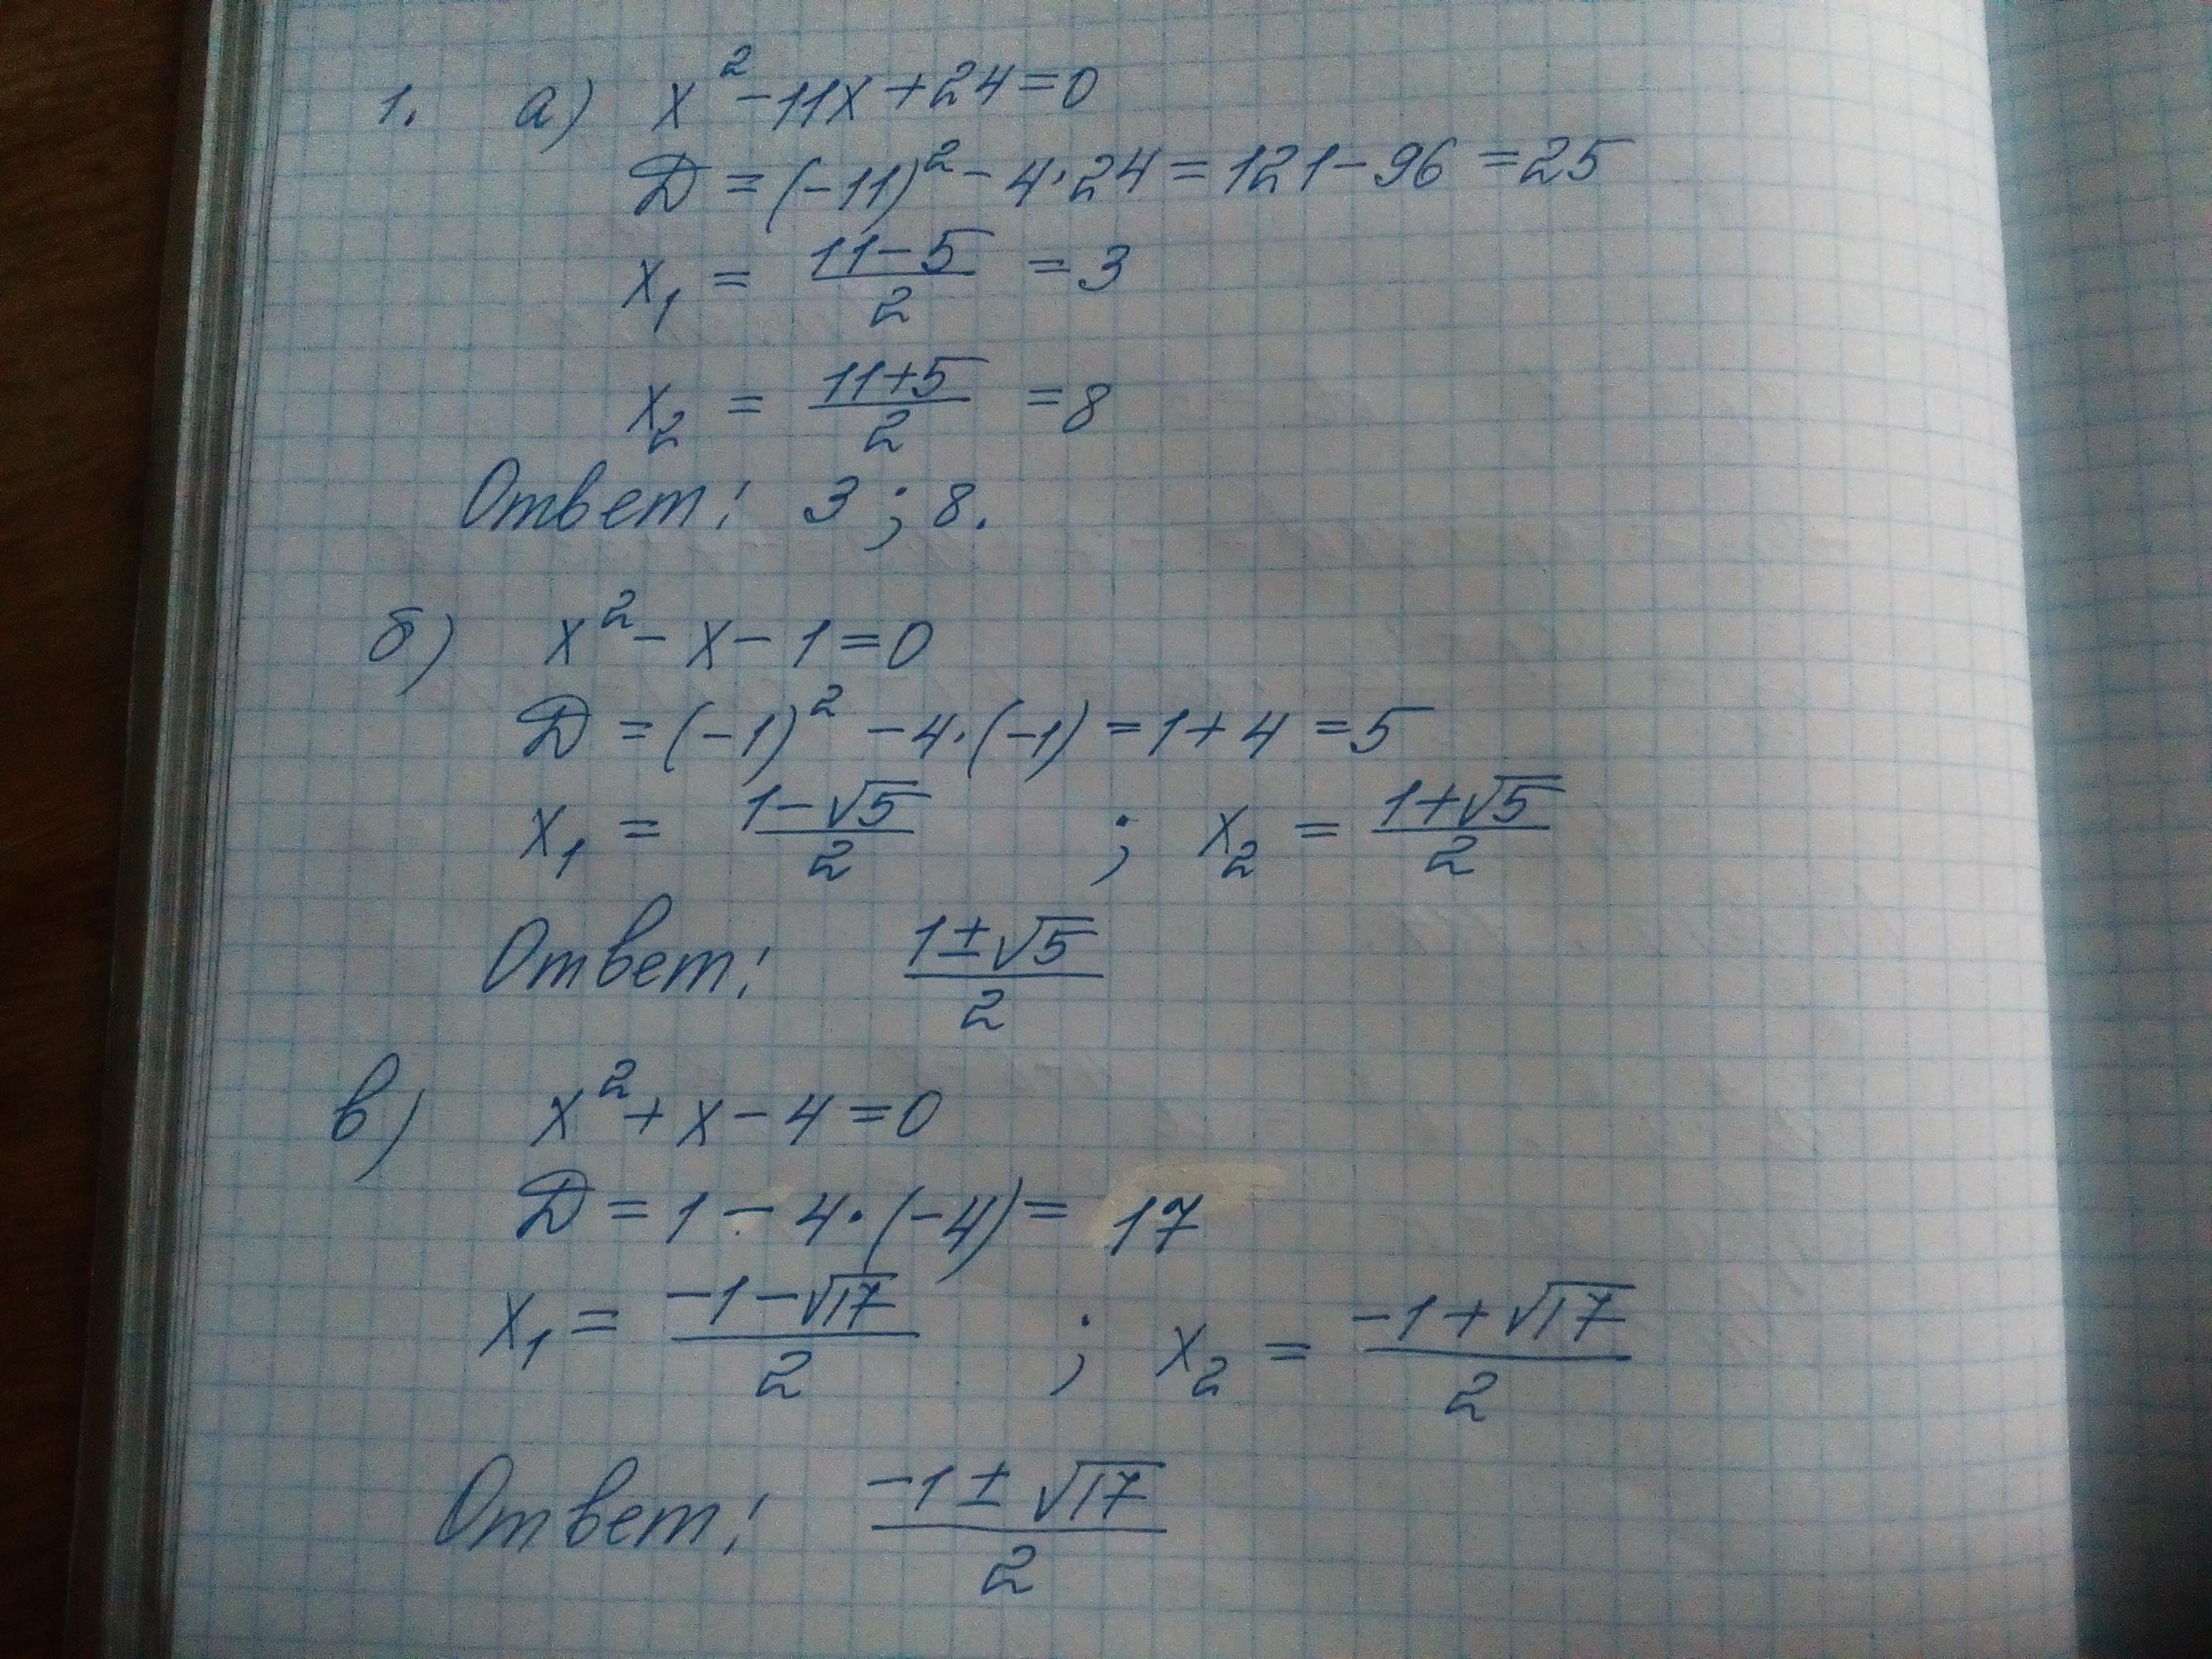 1. а) x² - 11x + 24 = 0
D = (-11)² - 4·24 = 121 - 96 = 25
x₁ = (11-5)/2 = 3
x₂ = (11+5)/2 = 8
Ответ: 3; 8.
б) x² - x - 1 = 0
D = (-1)² - 4·(-1) = 1 + 4 = 5
x₁ = (1-√5)/2 ; x₂ = (1+√5)/2
Ответ: (1±√5)/2
в) x² + x - 4 = 0
D = 1 - 4·(-4) = 17
x₁ = (-1-√17)/2 ; x₂ = (-1+√17)/2
Ответ: (-1±√17)/2